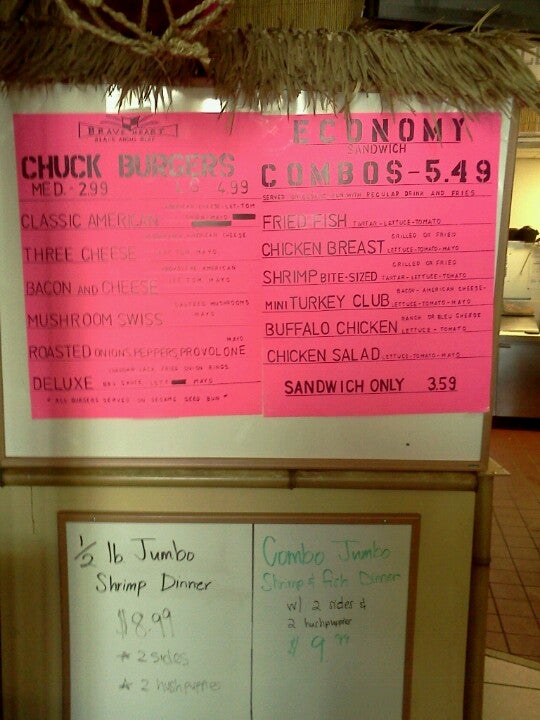 BRAVE HEART
BLACK ANGUS BEEF
CHUCK BURGERS
MED. - 2.99 LG 4.99
CLASSIC AMERICAN MAYO
AMERICAN CHEESE
THREE CHEESE MAYO
AMERICAN
BACON AND CHEESE TOM MAYO
SAUTEED MUSHROOMS
MUSHROOM SWISS MAYO
MAYO
ROASTED ONIONS, PEPPERS, PROVOLONE
CHEDDAR JACK, FRIED ONION RINGS
DELUXE BBQ SAUCE, MAYO
* ALL BURGERS SERVED ON SESAME SEED BUN *
ECONOMY
SANDWICH
COMBOS - 5.49
WITH REGULAR DRINK AND FRIES
FRIED FISH TARTAR-LETTUCE-TOMATO
GRILLED OR FRIED
CHICKEN BREAST LETTUCE-TOMATO-MAYO
GRILLED OR FRIED
SHRIMP BITE-SIZED TARTAR-LETTUCE-TOMATO
BACON-AMERICAN CHEESE-
MINI TURKEY CLUB LETTUCE-TOMATO-MAYO
RANCH OR BLEU CHEESE
BUFFALO CHICKEN LETTUCE-TOMATO
CHICKEN SALAD LETTUCE-TOMATO-MAYO
SANDWICH ONLY 3.59
1/2 lb Jumbo
Shrimp Dinner
$8.99
* 2 sides
* 2 hushpuppies
Combo Jumbo
Shrimp & fish Dinner
w/ 2 sides &
2 hushpuppies
$ 9.99